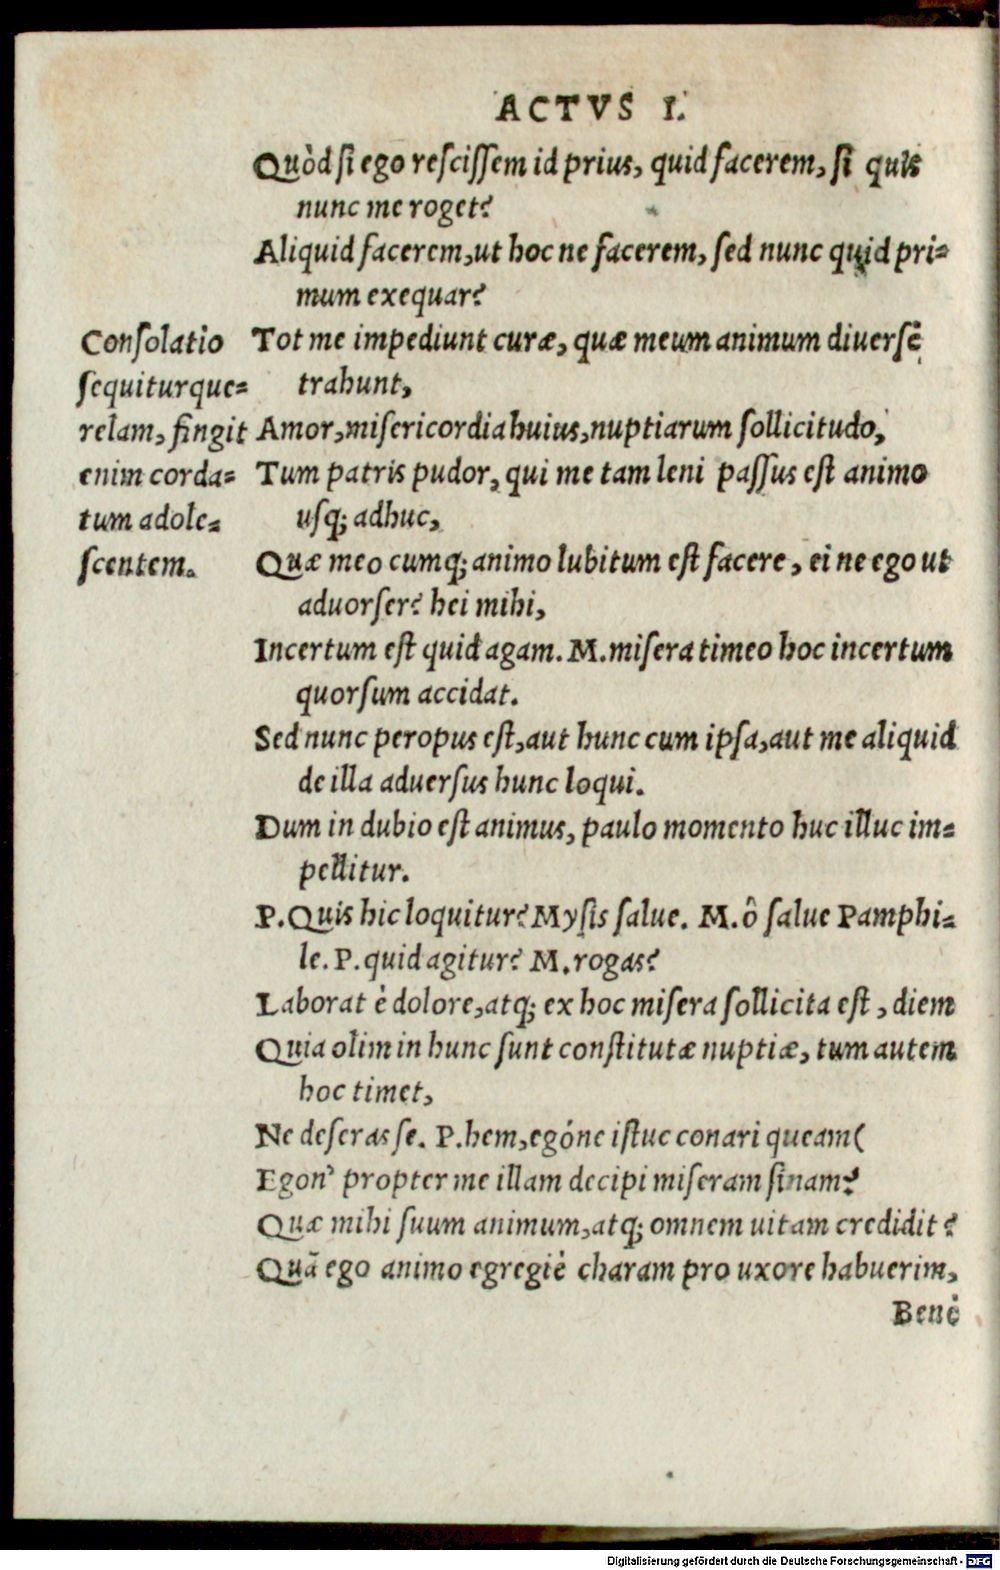 ACTVS I.
Quòd si ego rescissem id prius, quid facerem, si quis
nunc me roget?
Aliquid facerem, ut hoc ne facerem, sed nunc quid pri=
mum exequar?
Consolatio
sequitur que=
relam, fingit
enim corda=
tum adole=
scentem.
Tot me impediunt curæ, quæ meum animum diuersè
trahunt,
Amor, misericordia huius, nuptiarum sollicitudo,
Tum patris pudor, qui me tam leni passus est animo
usq; adhuc,
Quæ meo cumq; animo lubitum est facere, ei ne ego ut
aduorser? hei mihi,
Incertum est quid agam. M. misera timeo hoc incertum
quorsum accidat.
Sed nunc peropus est, aut hunc cum ipsa, aut me aliquid
de illa aduersus hunc loqui.
Dum in dubio est animus, paulo momento huc illuc im=
pellitur.
P. Quis hic loquitur? Mysis salue. M. ô salue Pamphi=
le. P. quid agitur? M. rogas?
Laborat è dolore, atq; ex hoc misera sollicita est, diem
Quia olim in hunc sunt constitutæ nuptiæ, tum autem
hoc timet,
Ne deseras se. P. hem, egóne istuc conari queam(
Egon' propter me illam decipi miseram sinam?
Quæ mihi suum animum, atq; omnem uitam credidit?
Quã ego animo egregiè charam pro uxore habuerim,
Benè
Digitalisierung gefördert durch die Deutsche Forschungsgemeinschaft - DFG